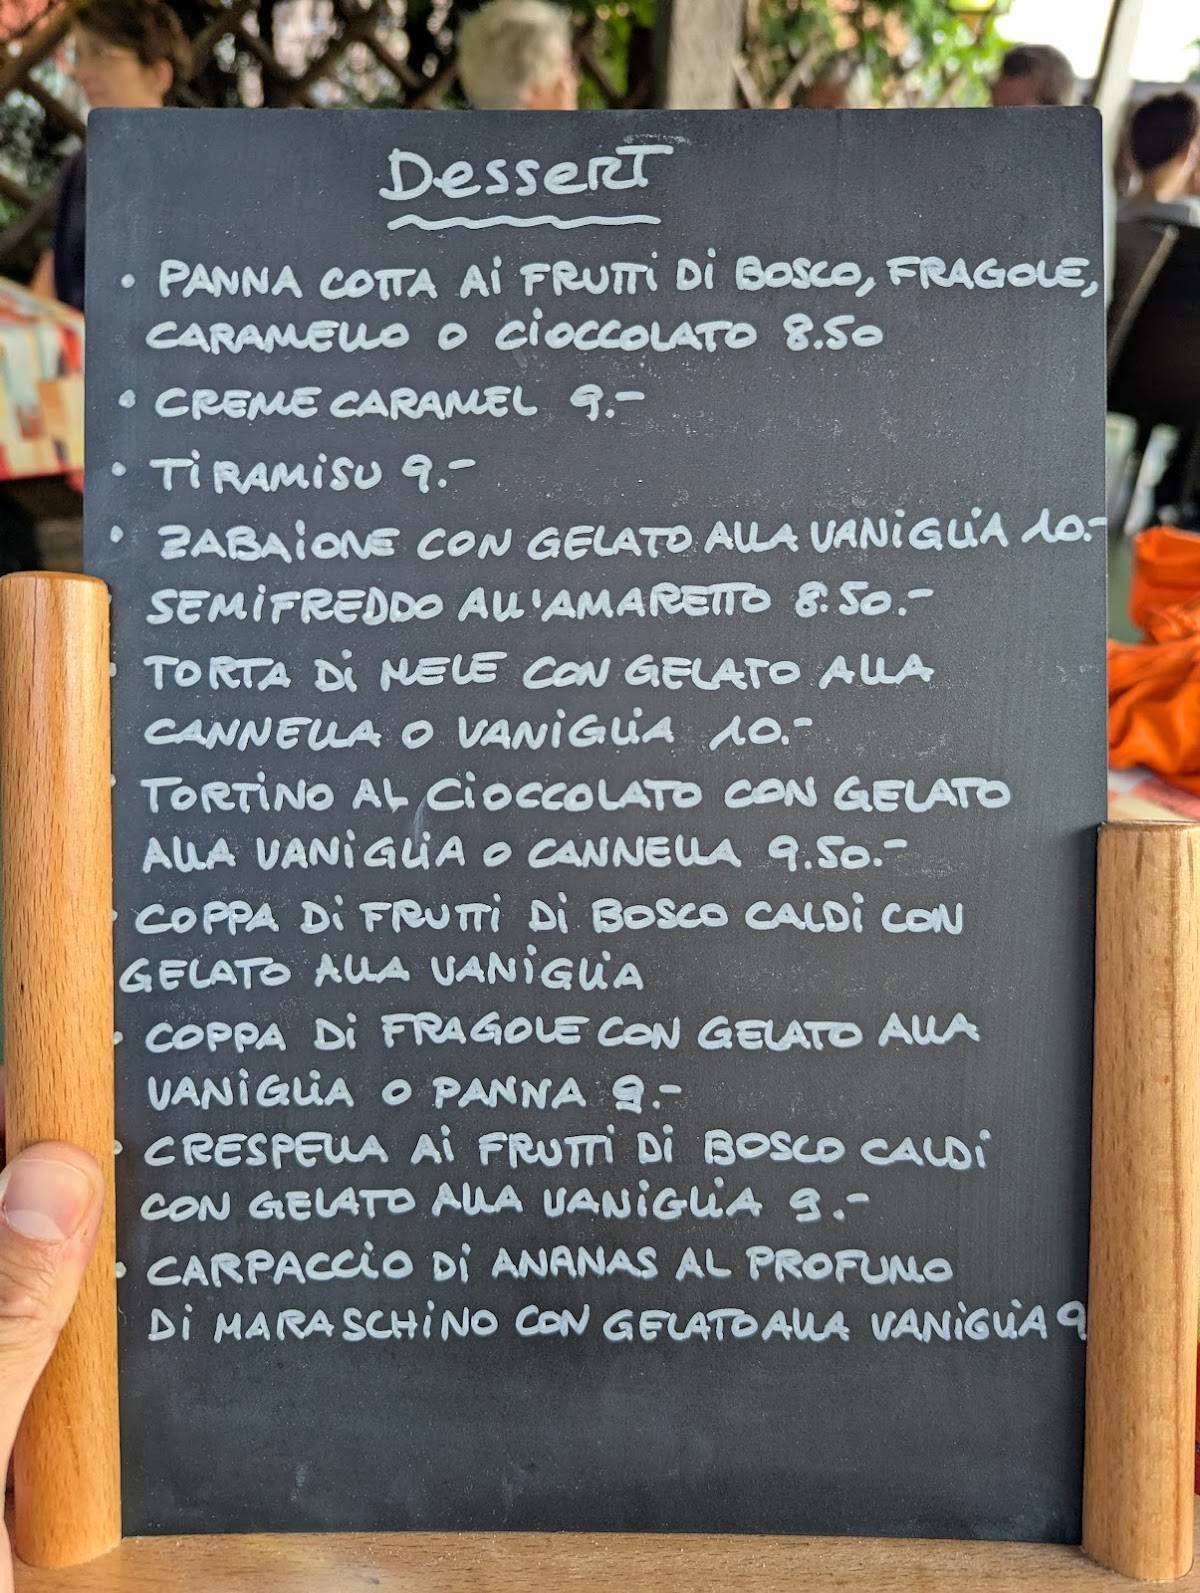 Dessert
• PANNA COTTA Ai FRUTTi Di BOSCO, FRAGOLE,
CARAMELLO O CiOCCOLATO 8.50
• CREME CARAMEL 9.-
• TiRAMiSU 9.-
• ZABAiONE CON GELATO ALLA VANiGLiA 10.-
SEMiFREDDO ALL'AMARETTO 8.50.-
• TORTA Di MELE CON GELATO ALLA
CANNELLA O VANiGLiA 10.-
• TORTiNO AL CiOCCOLATO CON GELATO
ALLA VANiGLiA O CANNELLA 9.50.-
• COPPA Di FRUTTi Di BOSCO CALDi CON
GELATO ALLA VANiGLiA
• COPPA Di FRAGOLE CON GELATO ALLA
VANiGLiA O PANNA 9.-
• CRESPELLA Ai FRUTTi Di BOSCO CALDi
CON GELATO ALLA VANiGLiA 9.-
• CARPACCiO Di ANANAS AL PROFUMO
Di MARASCHiNO CON GELATO ALLA VANiGLiA 9